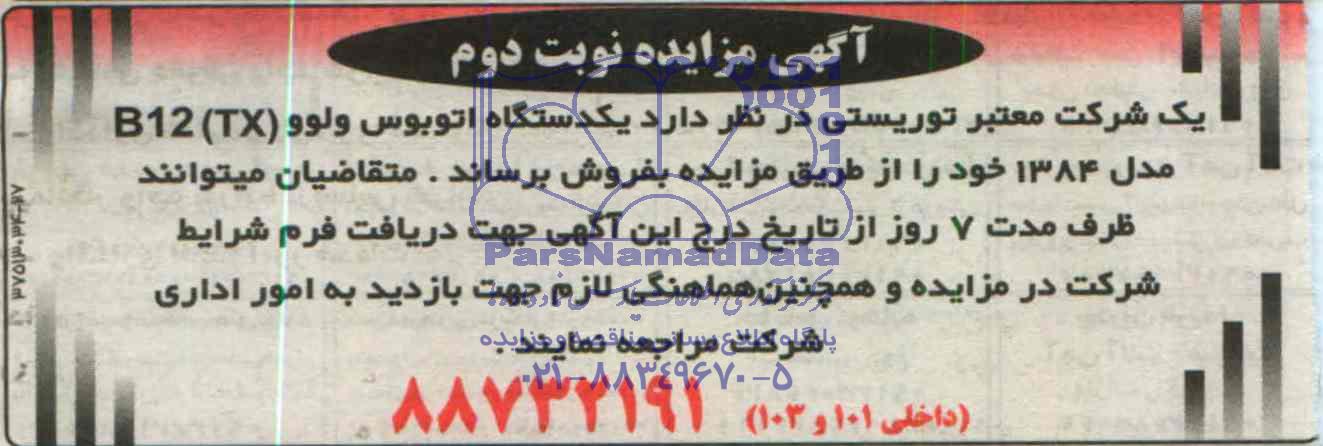 آگهی مزایده نوبت دوم
یک شرکت معتبر توریستی در نظر دارد یکدستگاه اتوبوس ولوو B12 (TX)
مدل ۱۳۸۴ خود را از طریق مزایده بفروش برساند . متقاضیان میتوانند
ظرف مدت ۷ روز از تاریخ درج این آگهی جهت دریافت فرم شرایط
شرکت در مزایده و همچنین هماهنگی لازم جهت بازدید به امور اداری
شرکت مراجعه نمایند .
۸۸۷۳۲۱۹۱ (داخلی ۱۰۱ و ۱۰۳)
ParsNamadData
پایگاه اطلاع رسانی مناقصه و مزایده
۰۲۱-۸۸۳۴۹۶۷۰-۵